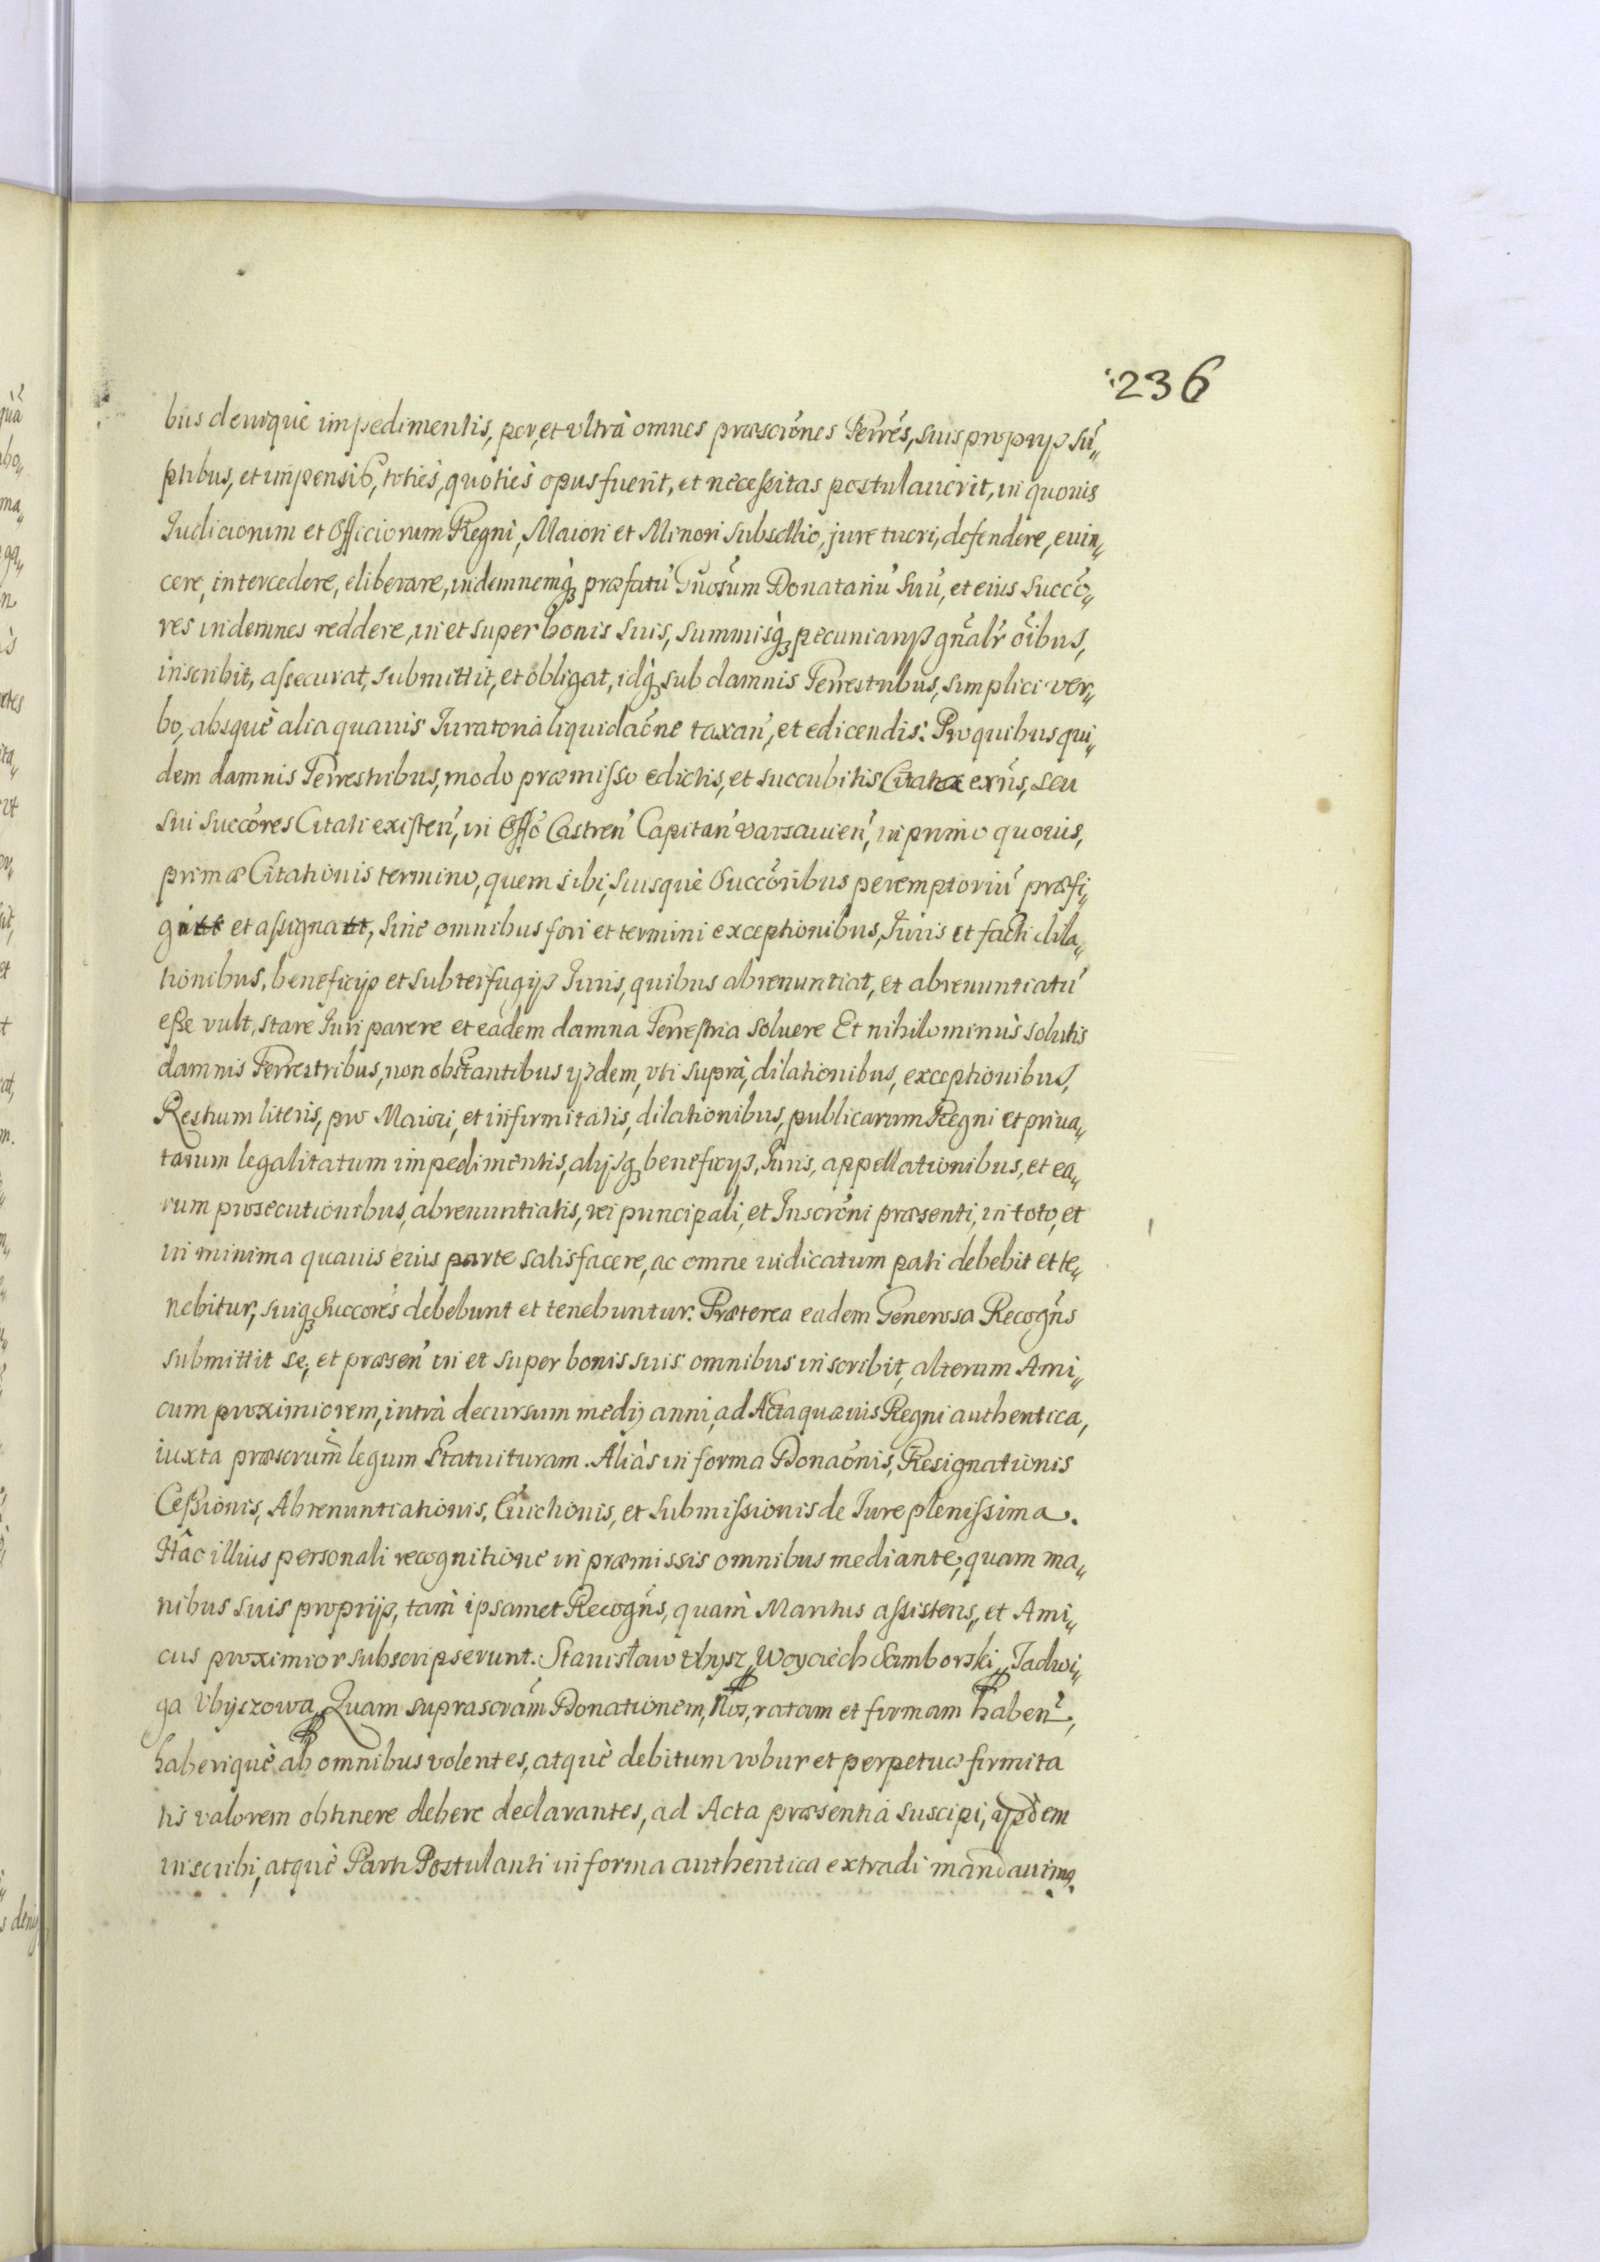 236
bus deniquè impedimentis, per, et vltrà omnes præscrōnes Terrēs, suis proprijs sū„
ptibus, et impensis, toties, quoties opus fuerit, et necessitas postulaverit, in quovis
Judiciorum et Officiorum Regni, Maiori et Minori subsellio, jure tueri, defendere, evin„
cere, intercedere, eliberare, indemnemq₃ præfatū Gnōsum Donatariū suū, et eius succō„
res indemnes reddere, in et super bonis suis, summisq₃ pecuniarijs gnālr̄ oībus,
inscribit, assecurat, submittit, et obligat, idq₃ sub damnis Terrestribus, simplici ver„
bo, absquè alia quavis Juratoria liquidaōne taxan̄, et edicendis. Pro quibus qui„
dem damnis Terrestribus, modo præmisso edictis, et succubitis Citata exn̄s, seu
sui succōres Citati existen̄, in Offō Castren̄ Capitan̄ Varsavien̄, in primo quovis,
primæ Citationis termino, quem sibi, suisquè Succōribus peremptoriū præfi„
gitt et assignatt, sine omnibus fori et termini exceptionibus, Juris et facti dila„
tionibus, beneficijs et subterfugijs Juris, quibus abrenuntiat, et abrenuntiatū
esse vult, stare Juri parere et eadem damna Terrestria soluere Et nihilominùs solutis
damnis Terrestribus, non obstantibus ijsdem, vti suprà, dilationibus, exceptionibus,
Restrum literis, pro Maiori, et infirmitatis, dilationibus, publicarum Regni et priva„
tarum legalitatum impedimentis, alijsq₃ beneficijs, Juris, appellationibus, et ea„
rum prosecutionibus, abrenuntiatis, rei principali, et Inscrōni præsenti, in toto, et
in minima quavis eius parte satisfacere, ac omne iudicatum pati debebit et te„
nebitur, suiq₃ succorēs debebunt et tenebuntur. Præterea eadem Generosa Recogn̄s
submittit se, et præsen̄ in et super bonis suis omnibus inscribit, alterum Ami„
cum proximiorem, intrà decursum medij anni, ad Acta quævis Regni authentica,
iuxta præscrum̄ legum Statuituram. Aliàs in forma Donaōnis, Resignationis
Cessionis, Abrenuntiationis, Evictionis, et submissionis de Jure plenissima.
Hâc illius personali recognitione in præmissis omnibus mediante, quam ma„
nibus suis proprijs, tam̀ ipsamet Recogn̄s, quam̀ Maritus assistens, et Ami„
cus proximior subscripserunt. Stanisław Vbysz„ Woyciech Samborski„ Jadwi„
ga Vbyszowa„ Quam suprascrām Donationem, Nos, ratam et firmam haben̄,
haberiquè ab omnibus volentes, atquè debitum robur et perpetuæ firmita
tis valorem obtinere debere declarantes, ad Acta præsentia suscipi, ijsdem
inscribi, atquè Parti Postulanti in forma authentica extradi mandavimq.